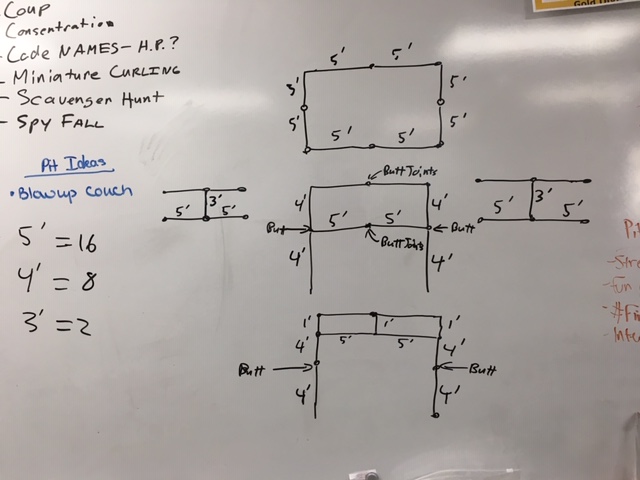 Coup
Consentration
- Code NAMES - H.P.?
- Miniature CURLING
- Scavenger Hunt
- SPY FALL
Pit Ideas
• Blowup couch
5' = 16
4' = 8
3' = 2
5' 5'
5'
5' 5'
5' 5'
Butt Joints
4' 4'
5' 5'
Butt
Butt
4' 4'
3'
5' 5'
3'
5' 5'
1' 1' 1'
4' 5' 5' 4'
Butt
Butt
4' 4'
Gold